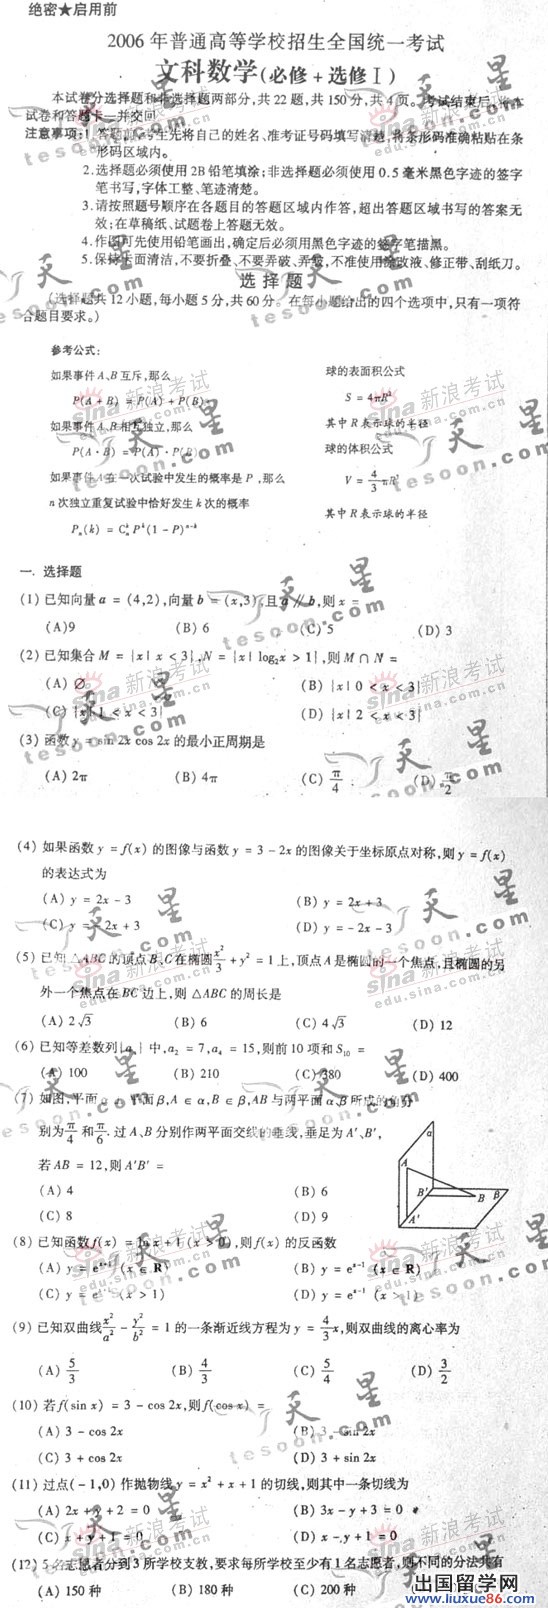 绝密★启用前
2006年普通高等学校招生全国统一考试
文科数学(必修+选修Ⅰ)
本试卷分选择题和非选择题两部分,共22题,共150分,共4页。考试结束后,将本
试卷和答题卡一并交回
注意事项:1.答题前,考生先将自己的姓名、准考证号码填写清楚,将条形码准确粘贴在条
形码区域内。
2.选择题必须使用2B铅笔填涂;非选择题必须使用0.5毫米黑色字迹的签字
笔书写,字体工整、笔迹清楚。
3.请按照题号顺序在各题目的答题区域内作答,超出答题区域书写的答案无
效;在草稿纸、试题卷上答题无效。
4.作图可先使用铅笔画出,确定后必须用黑色字迹的签字笔描黑。
5.保持卡面清洁,不要折叠、不要弄破、弄皱,不准使用涂改液、修正带、刮纸刀。
选择题
(选择题共12小题,每小题5分,共60分。在每小题给出的四个选项中,只有一项符
合题目要求。)
参考公式:
如果事件A、B互斥,那么 球的表面积公式
P(A + B) = P(A) + P(B) S = 4πR²
如果事件A、B相互独立,那么 其中R表示球的半径
P(A · B) = P(A) · P(B) 球的体积公式
如果事件A在一次试验中发生的概率是P,那么 V = 4/3 πR³
n次独立重复试验中恰好发生k次的概率 其中R表示球的半径
Pₙ(k) = CₙᵏPᵏ(1 − P)ⁿ⁻ᵏ
一. 选择题
(1) 已知向量a = (4,2),向量b = (x,3),且a // b,则x =
(A)9 (B) 6 (C) 5 (D) 3
(2) 已知集合M = {x | x < 3},N = {x | log₂x > 1},则M ∩ N =
(A) ∅ (B) {x | 0 < x < 3}
(C) {x | 1 < x < 3} (D) {x | 2 < x < 3}
(3) 函数y = sin 2x cos 2x的最小正周期是
(A) 2π (B) 4π (C) π/4 (D) π/2
(4) 如果函数y = f(x)的图像与函数y = 3 − 2x的图像关于坐标原点对称,则y = f(x)
的表达式为
(A) y = 2x − 3 (B) y = 2x + 3
(C) y = − 2x + 3 (D) y = − 2x − 3
(5) 已知△ABC的顶点B、C在椭圆x²/3 + y² = 1上,顶点A是椭圆的一个焦点,且椭圆的另
外一个焦点在BC边上,则△ABC的周长是
(A) 2√3 (B) 6 (C) 4√3 (D) 12
(6) 已知等差数列{aₙ}中,a₂ = 7,a₄ = 15,则前10项和S₁₀ =
(A) 100 (B) 210 (C) 380 (D) 400
(7) 如图,平面α⊥平面β,A ∈ α,B ∈ β,AB与两平面α、β所成的角分
别为π/4和π/6. 过A、B分别作两平面交线的垂线,垂足为A′、B′,
若AB = 12,则A′B′ =
(A) 4 (B) 6
(C) 8 (D) 9
α
A
B′
B
β
A′
(8) 已知函数f(x) = ln x + 1 (x > 0),则f(x)的反函数
(A) y = eˣ⁺¹ (x ∈ R) (B) y = eˣ⁻¹ (x ∈ R)
(C) y = eˣ⁺¹ (x > 1) (D) y = eˣ⁻¹ (x > 1)
(9) 已知双曲线x²/a² − y²/b² = 1的一条渐近线方程为y = 4/3 x,则双曲线的离心率为
(A) 5/3 (B) 4/3 (C) 5/4 (D) 3/2
(10) 若f(sin x) = 3 − cos 2x,则f(cos x) =
(A) 3 − cos 2x (B) 3 − sin 2x
(C) 3 + cos 2x (D) 3 + sin 2x
(11) 过点(−1,0)作抛物线y = x² + x + 1的切线,则其中一条切线为
(A) 2x + y + 2 = 0 (B) 3x − y + 3 = 0
(C) x + y + 1 = 0 (D) x − y + 1 = 0
(12) 5名志愿者分到3所学校支教,要求每所学校至少有1名志愿者,则不同的分法共有
(A) 150种 (B) 180种 (C) 200种
出国留学网
www.liuxue86.com